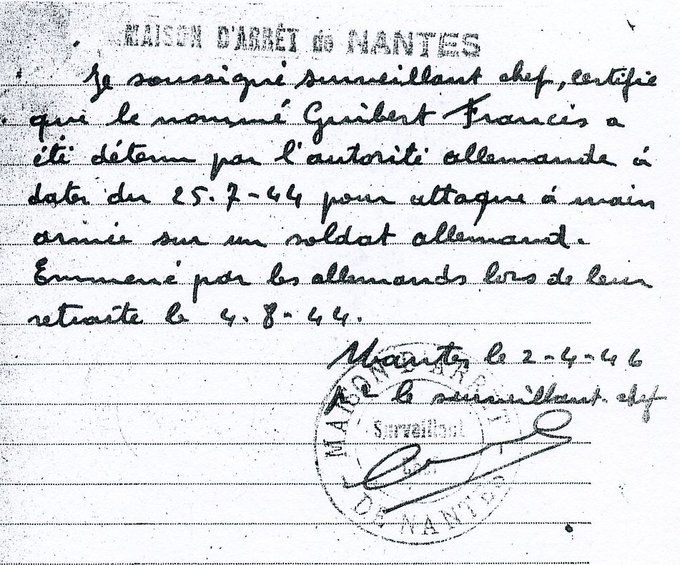 MAISON D'ARRÊT de NANTES
Je soussigné surveillant chef, certifie
que le nommé Guibert Francis a
été détenu par l'autorité allemande à
dater du 25-7-44 pour attaque à main
armée sur un soldat allemand.
Emmené par les allemands lors de leur
retraite le 4-8-44.
Nantes, le 2-4-46
le surveillant-chef
MAISON D'ARRET
Surveillant
Chef
DE NANTES